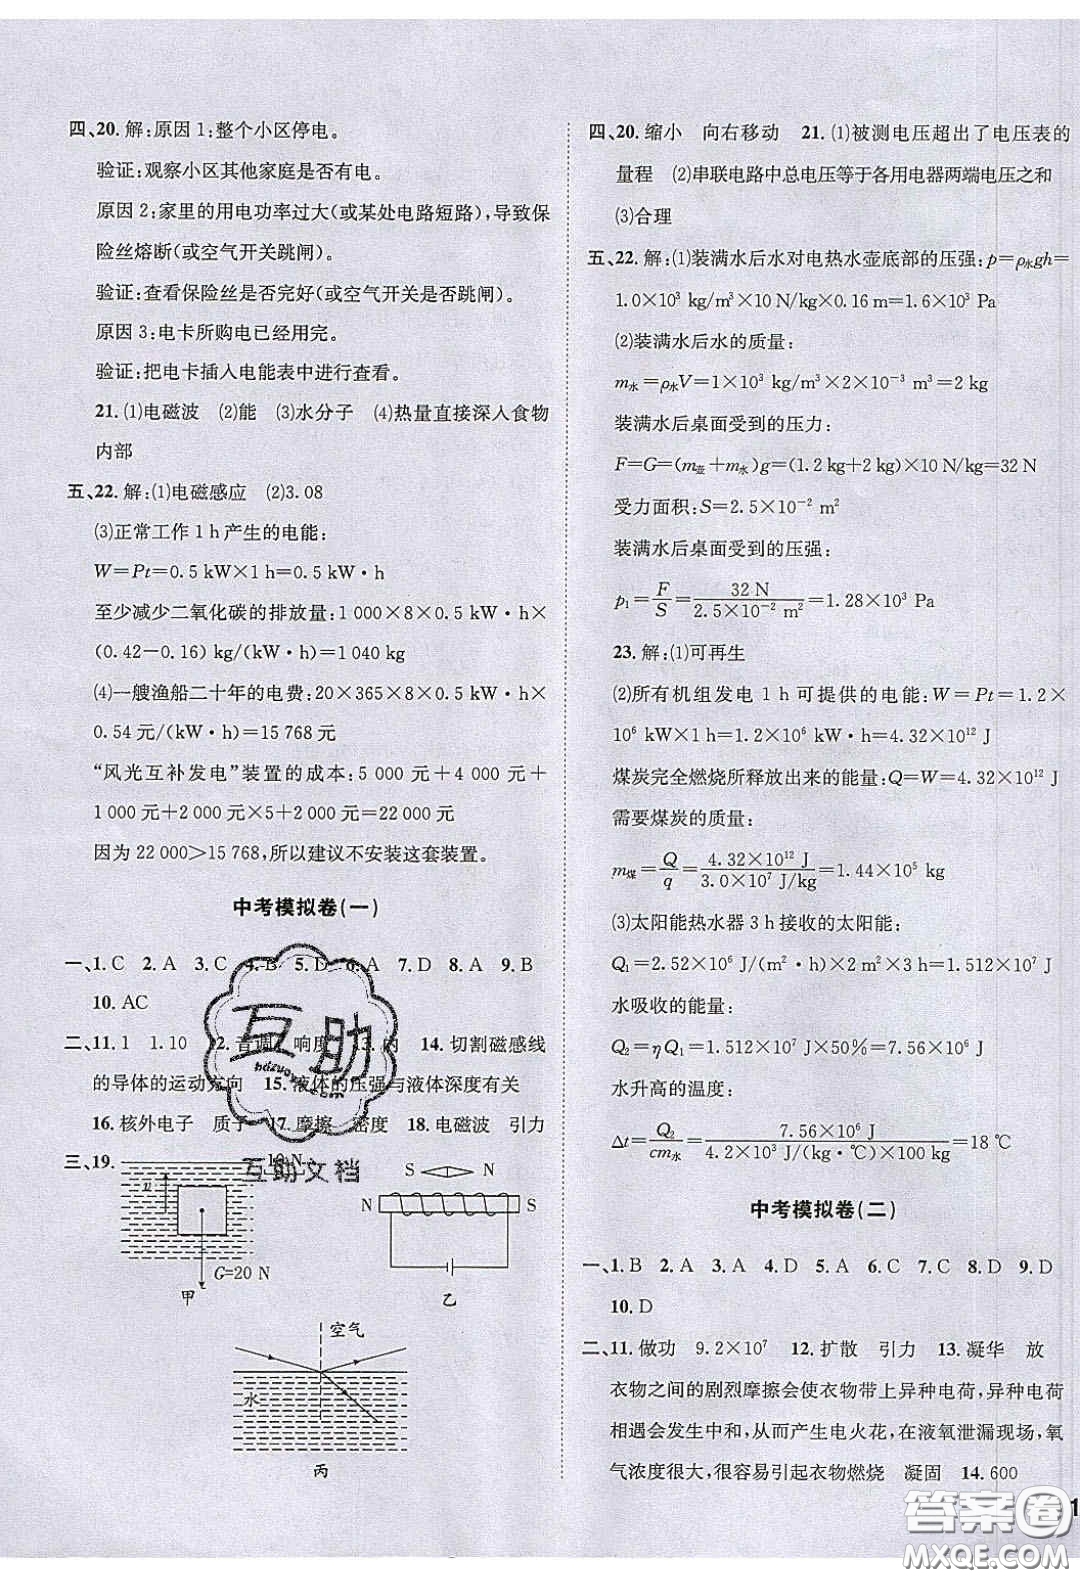 四、20. 解:原因 1:整个小区停电。
验证:观察小区其他家庭是否有电。
原因 2:家里的用电功率过大(或某处电路短路),导致保
险丝熔断(或空气开关跳闸)。
验证:查看保险丝是否完好(或空气开关是否跳闸)。
原因 3:电卡所购电已经用完。
验证:把电卡插入电能表中进行查看。
21. (1)电磁波 (2)能 (3)水分子 (4)热量直接深入食物
内部
五、22. 解:(1)电磁感应 (2)3.08
(3)正常工作 1 h 产生的电能:
W=Pt=0.5 kW×1 h=0.5 kW·h
至少减少二氧化碳的排放量:1 000×8×0.5 kW·h×
(0.42-0.16) kg/(kW·h)=1 040 kg
(4)一艘渔船二十年的电费:20×365×8×0.5 kW·h×
0.54 元/(kW·h)=15 768 元
“风光互补发电”装置的成本:5 000 元+4 000 元+
1 000 元+2 000 元×5+2 000 元=22 000 元
因为 22 000>15 768,所以建议不安装这套装置。
中考模拟卷(一)
一、1. C 2. A 3. C 4. B 5. D 6. A 7. D 8. A 9. B
10. AC
二、11. 1 1.10 12. 音调 响度 13. 内 14. 切割磁感线
的导体的运动方向 15. 液体的压强与液体深度有关
16. 核外电子 质子 17. 摩擦 密度 18. 电磁波 引力
三、19.
10 N
v
G=20 N
甲
S N
N S
乙
空气
水
丙
互助
bdzuoye.com
互助文档
四、20. 缩小 向右移动 21. (1)被测电压超出了电压表的
量程 (2)串联电路中总电压等于各用电器两端电压之和
(3)合理
五、22. 解:(1)装满水后水对电热水壶底部的压强:p=ρ水gh=
1.0×10³ kg/m³×10 N/kg×0.16 m=1.6×10³ Pa
(2)装满水后水的质量:
m水=ρ水V=1×10³ kg/m³×2×10⁻³ m³=2 kg
装满水后桌面受到的压力:
F=G=(m壶+m水)g=(1.2 kg+2 kg)×10 N/kg=32 N
受力面积:S=2.5×10⁻² m²
装满水后桌面受到的压强:
p₁=F/S=32 N/(2.5×10⁻² m²)=1.28×10³ Pa
23. 解:(1)可再生
(2)所有机组发电 1 h 可提供的电能:W=Pt=1.2×
10⁶ kW×1 h=1.2×10⁶ kW·h=4.32×10¹² J
煤炭完全燃烧所释放出来的能量:Q=W=4.32×10¹² J
需要煤炭的质量:
m煤=Q/q=4.32×10¹² J/(3.0×10⁷ J/kg)=1.44×10⁵ kg
(3)太阳能热水器 3 h 接收的太阳能:
Q₁=2.52×10⁶ J/(m²·h)×2 m²×3 h=1.512×10⁷ J
水吸收的能量:
Q₂=ηQ₁=1.512×10⁷ J×50%=7.56×10⁶ J
水升高的温度:
Δt=Q₂/(cm水)=7.56×10⁶ J/(4.2×10³ J/(kg·℃)×100 kg)=18 ℃
中考模拟卷(二)
一、1. B 2. A 3. A 4. D 5. A 6. C 7. C 8. D 9. D
10. D
二、11. 做功 9.2×10⁷ 12. 扩散 引力 13. 凝华 放
衣物之间的剧烈摩擦会使衣物带上异种电荷,异种电荷
相遇会发生中和,从而产生电火花,在液氧泄漏现场,氧
气浓度很大,很容易引起衣物燃烧 凝固 14. 600
答案圈
MXQE.COM
1